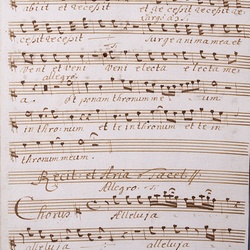 abuit et recepit et recepit recepit re-
cepit recepit Surge ados. Surge anima mea et
Veni et Veni electa electa me-
a. allegro. et ponam thronum me um
in throinum et te in thronum et te in
thronum meum.
Recit et Aria tacet
Allegro.
Chorus Alleluja
alleluja alleluja